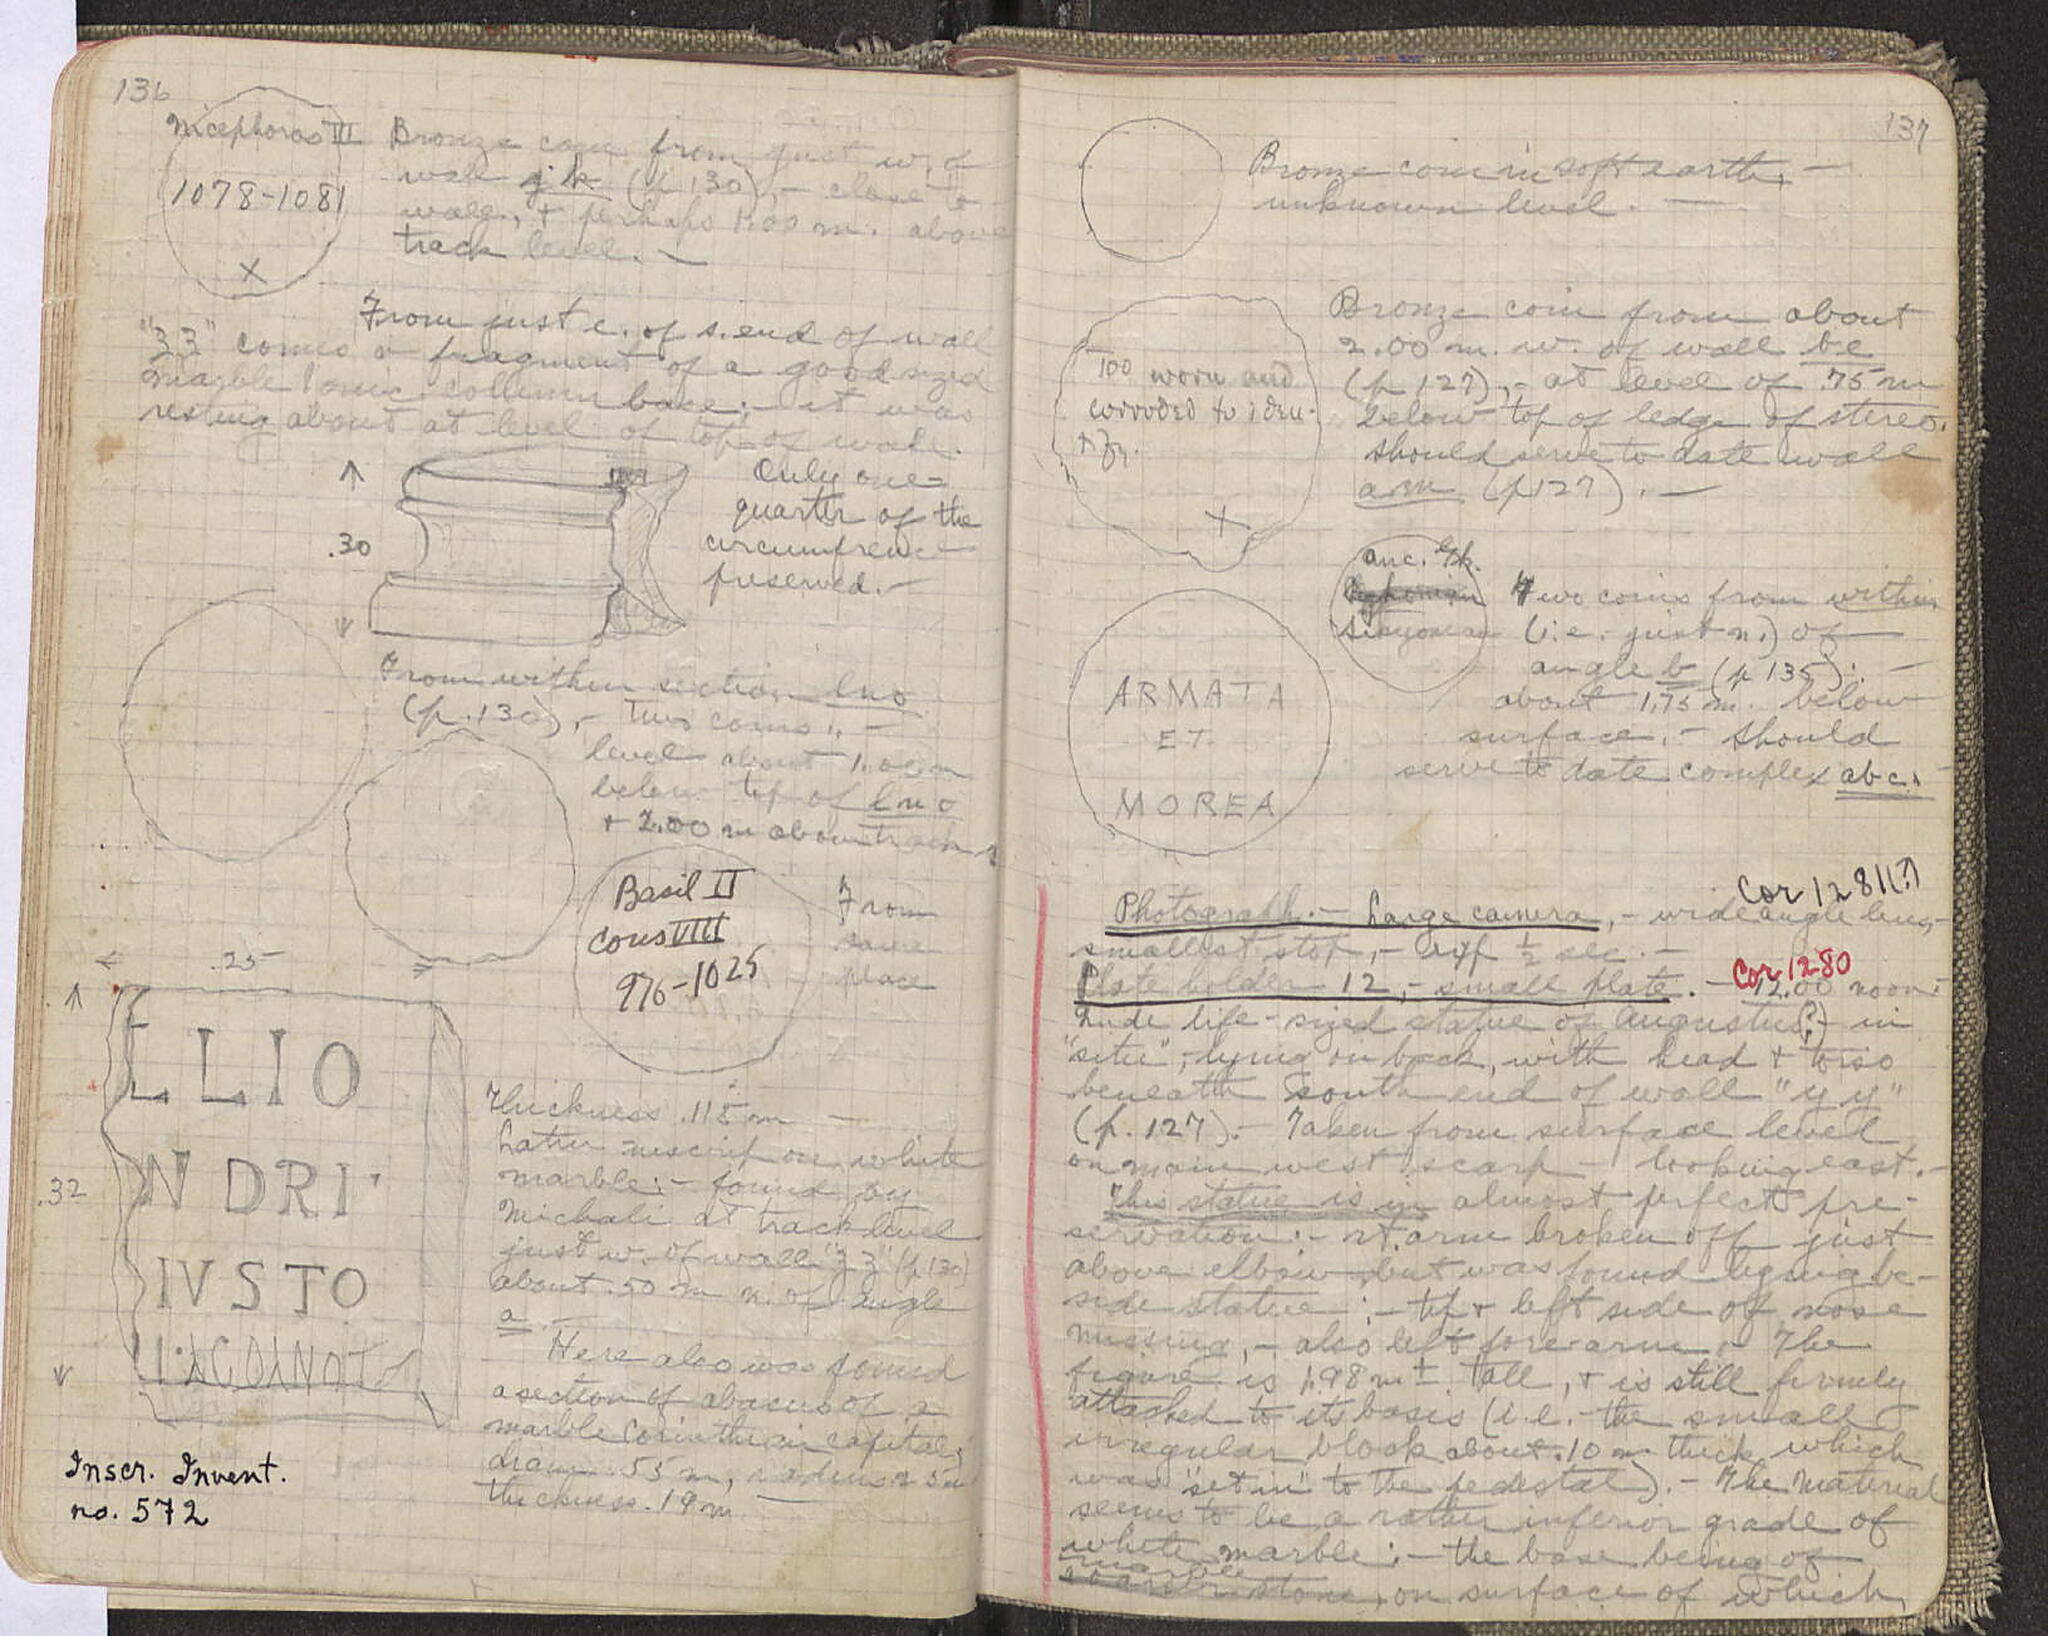 136
Nicephoros III
1078-1081
X
Bronze coin from just w. of
wall jk (p 130), - close to
wall, + perhaps 1.00 m. above
track level. -
From just e. of s. end of wall
"zz" comes a fragment of a good sized
marble Ionic column base; - it was
resting about at level of top of wall.
.30
Only one-
quarter of the
circumfrence
preserved. -
From within section lno
(p. 130), - two coins :. -
level about 1.00 m
below top of lno
+ 2.00 m above track
Basil II
Cons VIII
976-1025
From
same
place
.25
.32
ELLIO
NDRI·
IVSTO
Thickness .115 m -
Latin inscrip on white
marble: - found by
Michali at track level
just w. of wall "zz" (p 130)
about .50 m n. of angle
a. -
Here also was found
a section of abacus of a
marble Corinthian capital;
diam. .55 m,
thickness .19 m -
Inscr. Invent.
no. 572
137
Bronze coin in soft earth, -
unknown level. -
Too worn and
corroded to iden-
tify.
X
Bronze coin from about
2.00 m. w. of wall be
(p 127), - at level of .75 m
below top of ledge of stereo.
should serve to date wall
am (p 127). -
anc. Gk.
Sicyonian
ARMATA
ET
MOREA
Two coins from within
(i.e. just n.) of
angle b (p 135): -
about 1.75 m. below
surface. - Should
serve to date complex abc. -
Cor 1281(?)
Photograph. - Large camera, - wide angle lens, -
smallest stop, - exp ½ sec. -
Cor 1280
Plate holder 12, - small plate. - 12.00 noon:
Nude life-sized statue of Augustus(?) - in
"situ", - lying on back, with head + torso
beneath south end of wall "yy"
(p. 127). - Taken from surface level
on main west scarp - looking east. -
This statue is in almost perfect pre-
servation: - rt. arm broken off just
above elbow but was found lying be-
side statue; - tip + left side of nose
missing, - also left forearm. - The
figure is 1.98 m ± tall, + is still firmly
attached to its basis (i.e. - the small
irregular block about .10 m thick which
was "set in" to the pedestal). - The material
seems to be a rather inferior grade of
white marble: - the base being of
marble
coarser stone, on surface of which